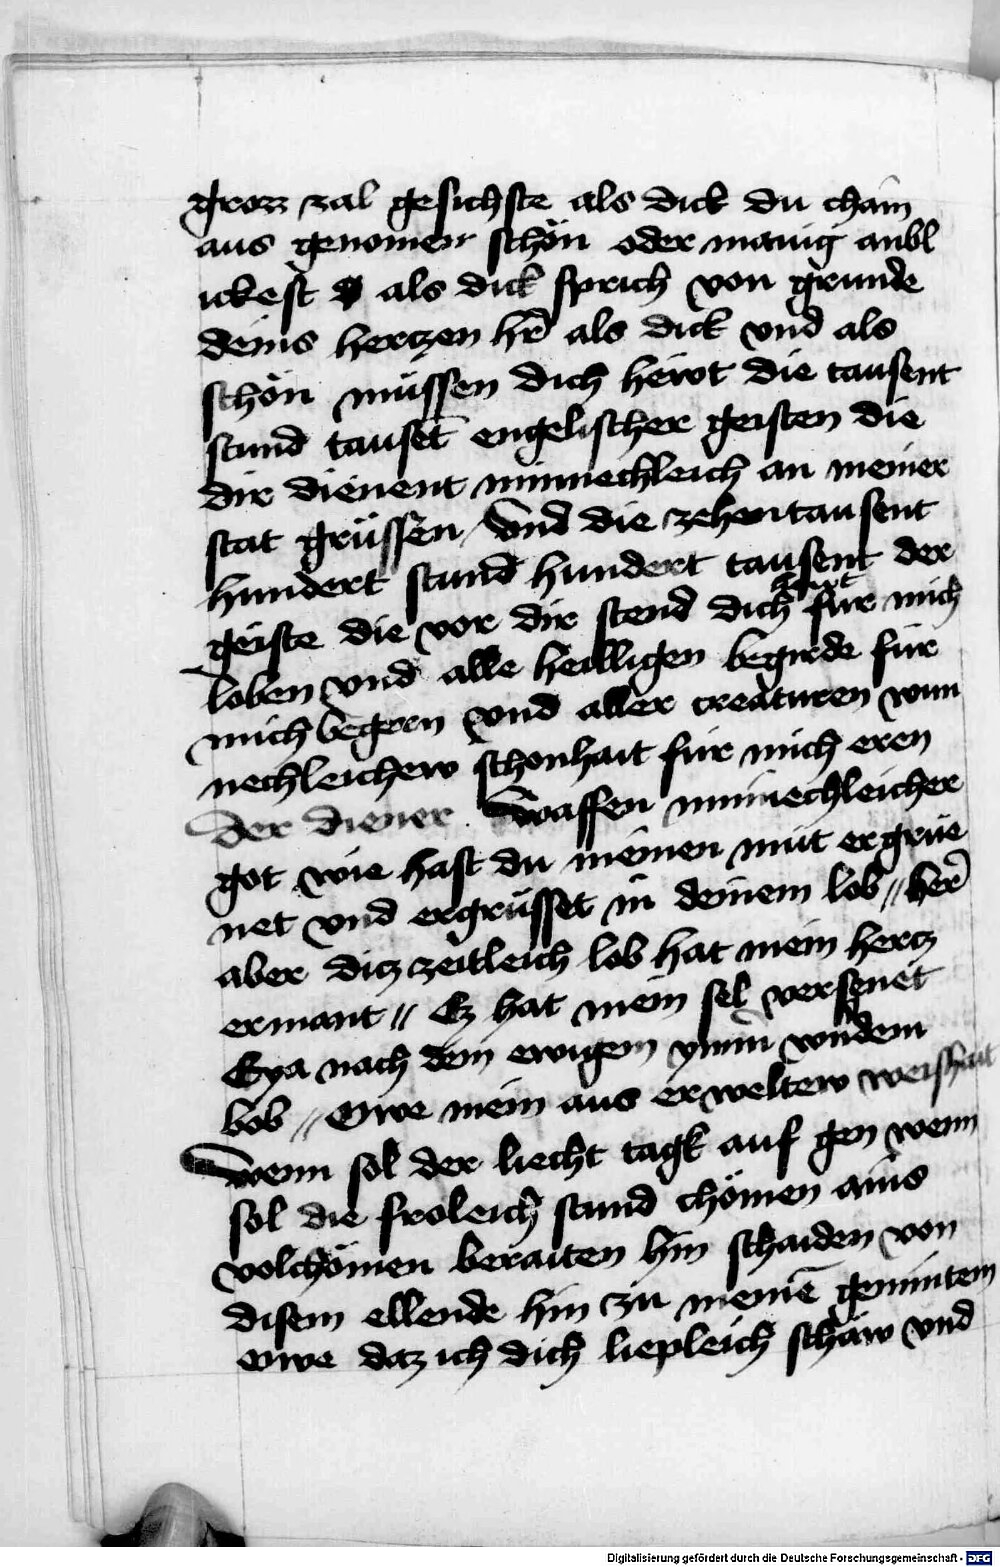 grozz zal gesichste als dick du chain
aus genomen schön oder manig anbl
ickest als dick sprich von grunde
deins hertzen hr̄ als dick vnd als
schön müssen dich hewt die tausent
stund tausēt engelischer geisten die
dir dienent minnechleich an meiner
stat grüssen / Vnd die zehentausent
hundert stund hundert tausent der
geiste die vor dir stend dich hewt für mich
loben vnd alle heilligen begirde für
mich begern vnd aller creaturen wun
nechleichew schonhait für mich eren
Der diener Waffen minnechleicher
got wie hast du meinen müt ergrüe
net vnd ergrüsset in deinem lob // her̄
aber ditz zeitleich lob hat mein hertz
ermant // Ez hat mein sel versenet
Eya nach dem ewigem ymm̄ wndem
lob // Owe mein aus erweltew weishait
Wenn sol der liecht tagk auf gen wenn
sol die froleich stund chömen ains
volchömen beraiten hin schaiden von
disem ellende hin zu meinē gemintem
Owe daz ich dich liepleich schaw vnd
Digitalisierung gefördert durch die Deutsche Forschungsgemeinschaft - DFG